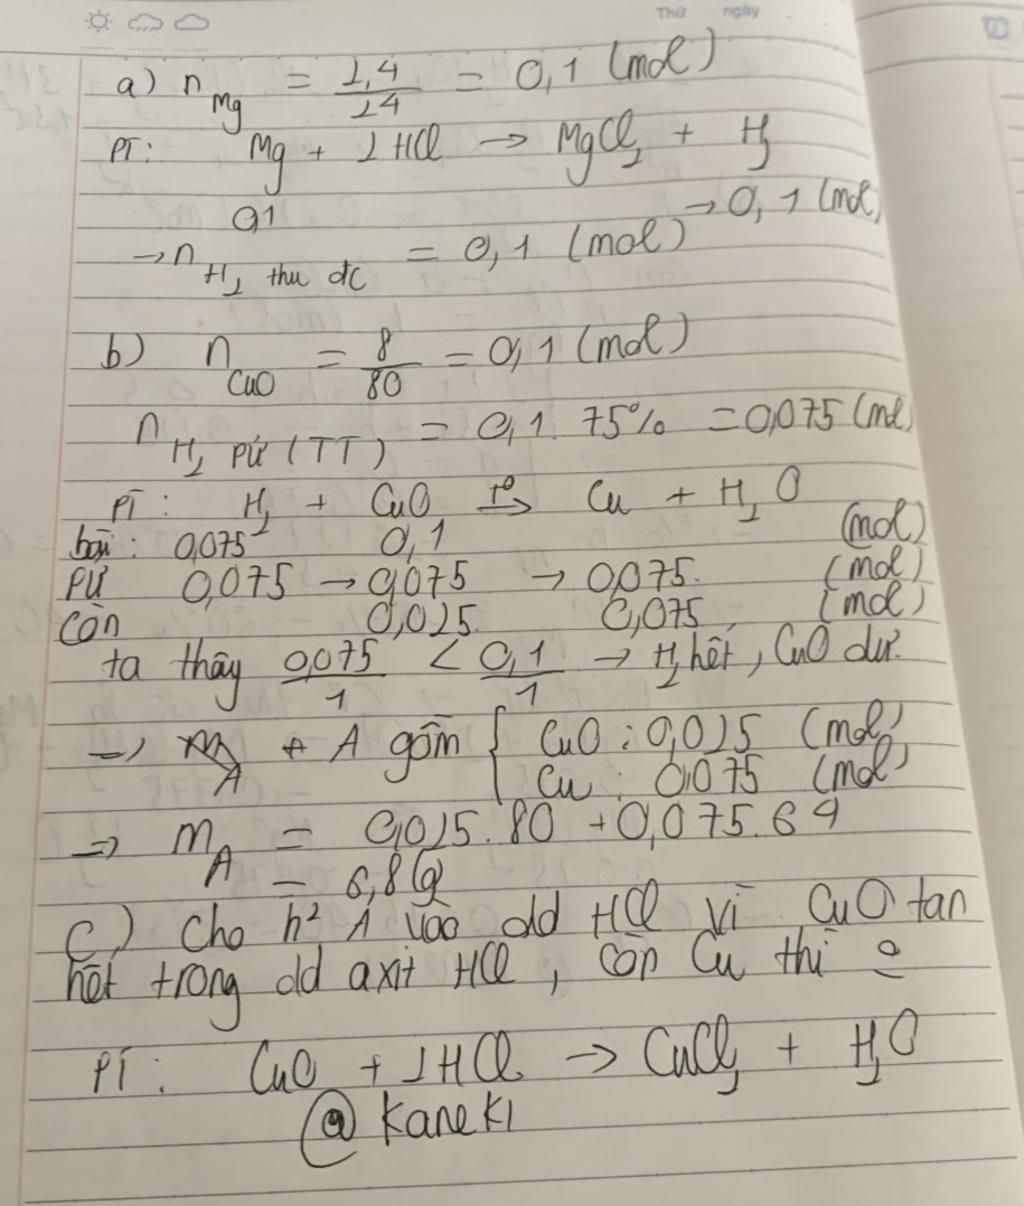 Thứ ngày
a) n Mg = 2,4/24 = 0,1 (mol)
PT: Mg + 2HCl → MgCl2 + H2
0,1 → 0,1 (mol)
→ n H2 thu đc = 0,1 (mol)
b) n CuO = 8/80 = 0,1 (mol)
n H2 PƯ (TT) = 0,1. 75% = 0,075 (mol)
PT: H2 + CuO t°→ Cu + H2O
bđ: 0,075 0,1 (mol)
PƯ 0,075 → 0,075 → 0,075. (mol)
Còn 0,025. 0,075, (mol)
ta thấy 0,075/1 < 0,1/1 → H2 hết, CuO dư.
=> A gồm { CuO : 0,025 (mol)
Cu : 0,075 (mol)
=> m A = 0,025.80 + 0,075.64
= 6,8(g)
c) Cho h² A vào dd HCl vì CuO tan
hết trong dd axit HCl, còn Cu thì
PT: CuO + 2HCl → CuCl2 + H2O
@ Kaneki